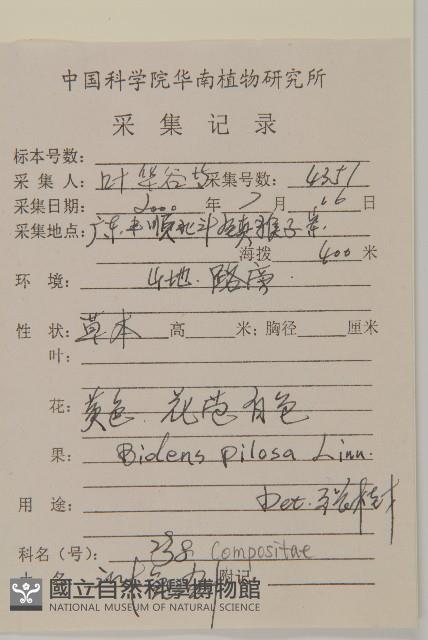 中国科学院华南植物研究所
采集记录
标本号数:
采集人: 叶华谷 采集号数: 4351
采集日期: 2000 年 7 月 16 日
采集地点: 广东丰顺北斗镇猴子岽
海拨 400 米
环境: 山地.路旁.
性状: 草本 高 米; 胸径 厘米
叶:
花: 黄色. 花苞有色
果: Bidens pilosa Linn.
用途: Det.
科名(号): 238 Compositae
附记
國立自然科學博物館
NATIONAL MUSEUM OF NATURAL SCIENCE